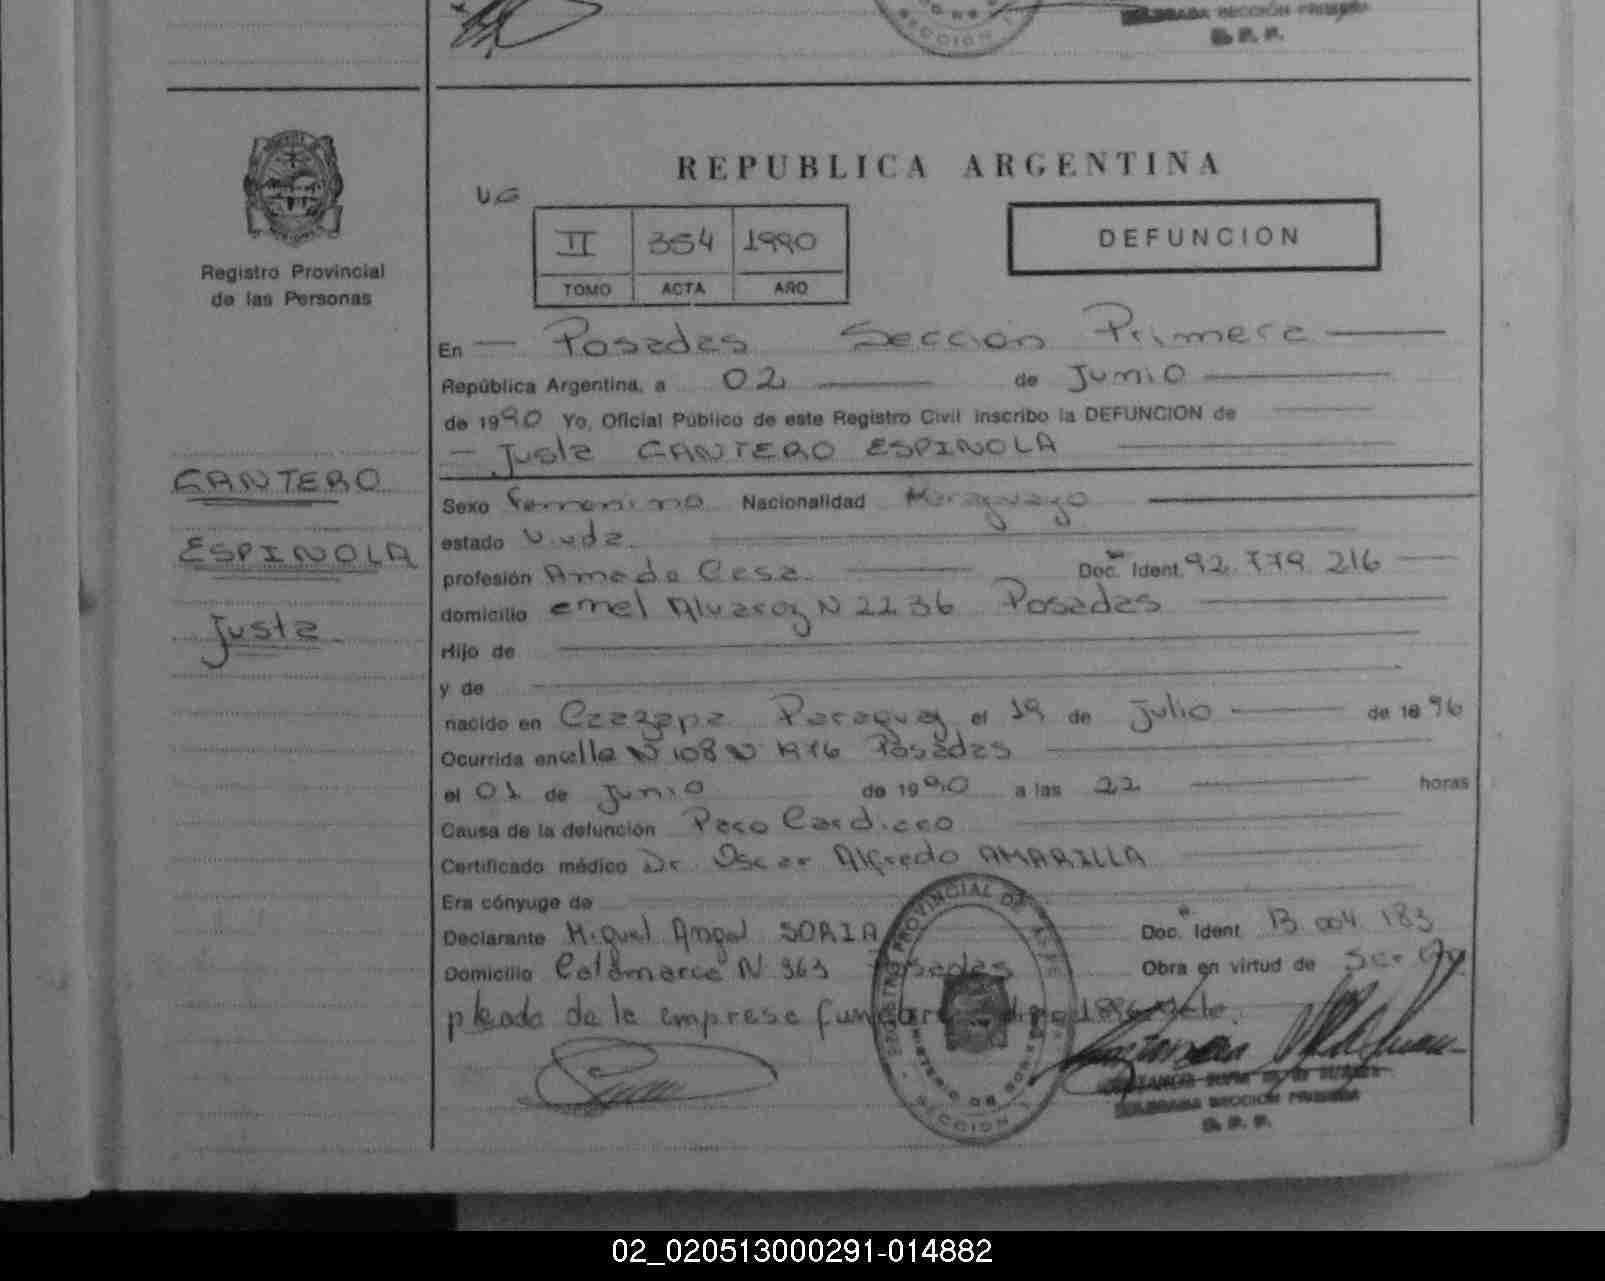 DELEGADA SECCIÓN PRIMERA
R. P. P.
SECCION
Registro Provincial
de las Personas
REPUBLICA ARGENTINA
UG
II 354 1990
TOMO ACTA AÑO
DEFUNCION
En Posadas Sección Primera
República Argentina, a 02 de Junio
de 1990 Yo, Oficial Público de este Registro Civil inscribo la DEFUNCION de
Justa CANTERO ESPINOLA
CANTERO
ESPINOLA
Justa
Sexo femenino Nacionalidad Paraguaya
estado viuda
profesión Ama de Casa Doc. Ident. 92.779.216
domicilio Alvarez N 2236 Posadas
Hijo de
y de
nacido en Caazapa Paraguay el 19 de Julio de 1896
Ocurrida en calle N 108 N 1976 Posadas
el 01 de Junio de 1990 a las 22 horas
Causa de la defunción Paro Cardiaco
Certificado médico Dr. Oscar Alfredo AMARILLA
Era cónyuge de
Declarante Miguel Angel SORIA Doc. Ident 13.004.183
Domicilio Catamarca N 363 Posadas Obra en virtud de Ser
pleado de la empresa 1896
REGISTRO PROVINCIAL DE LAS PERSONAS
SECCION 1
DELEGADA SECCION PRIMERA
R. P. P.
02_020513000291-014882